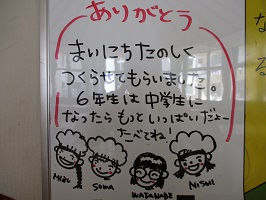 ありがとう
まいにちたのしく
つくらせてもらいました。
6年生は中学生に
なったらもっといっぱいだよー
たべてね!
Soma
WATANABE
NISHI